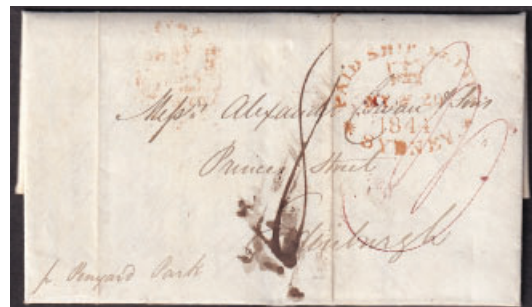 PAID SHIP
1844
SYDNEY
Messrs. Alexander Cowan & Sons
Princes Street
Edinburgh
pr Penyard Park